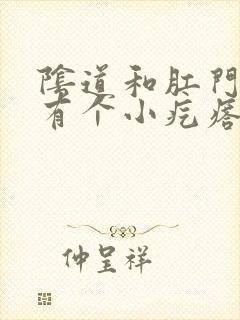 陰道和肛門
有个小疙瘩
仲呈祥